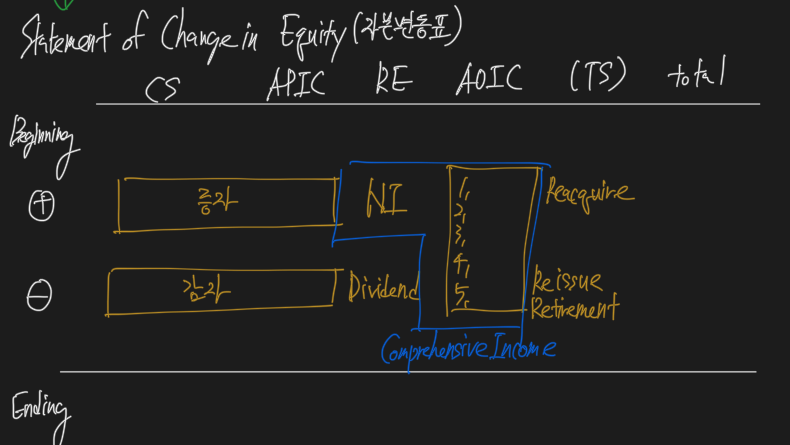 Statement of Change in Equity (자본변동표)
CS APIC RE AOIC (TS) total
Beginning
⊕ 증자 NI 1, Reacquire
2,
3,
4,
⊖ 감자 Dividend 5, Reissue
Retirement
Comprehensive Income
Ending